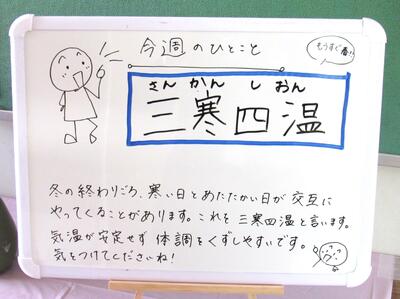 今週のひとこと
もうすぐ春!!
さん かん し おん
三寒四温
冬の終わりごろ、寒い日とあたたかい日が交互に
やってくることがあります。これを三寒四温と言います。
気温が安定せず体調をくずしやすいです。
気をつけてくださいね!